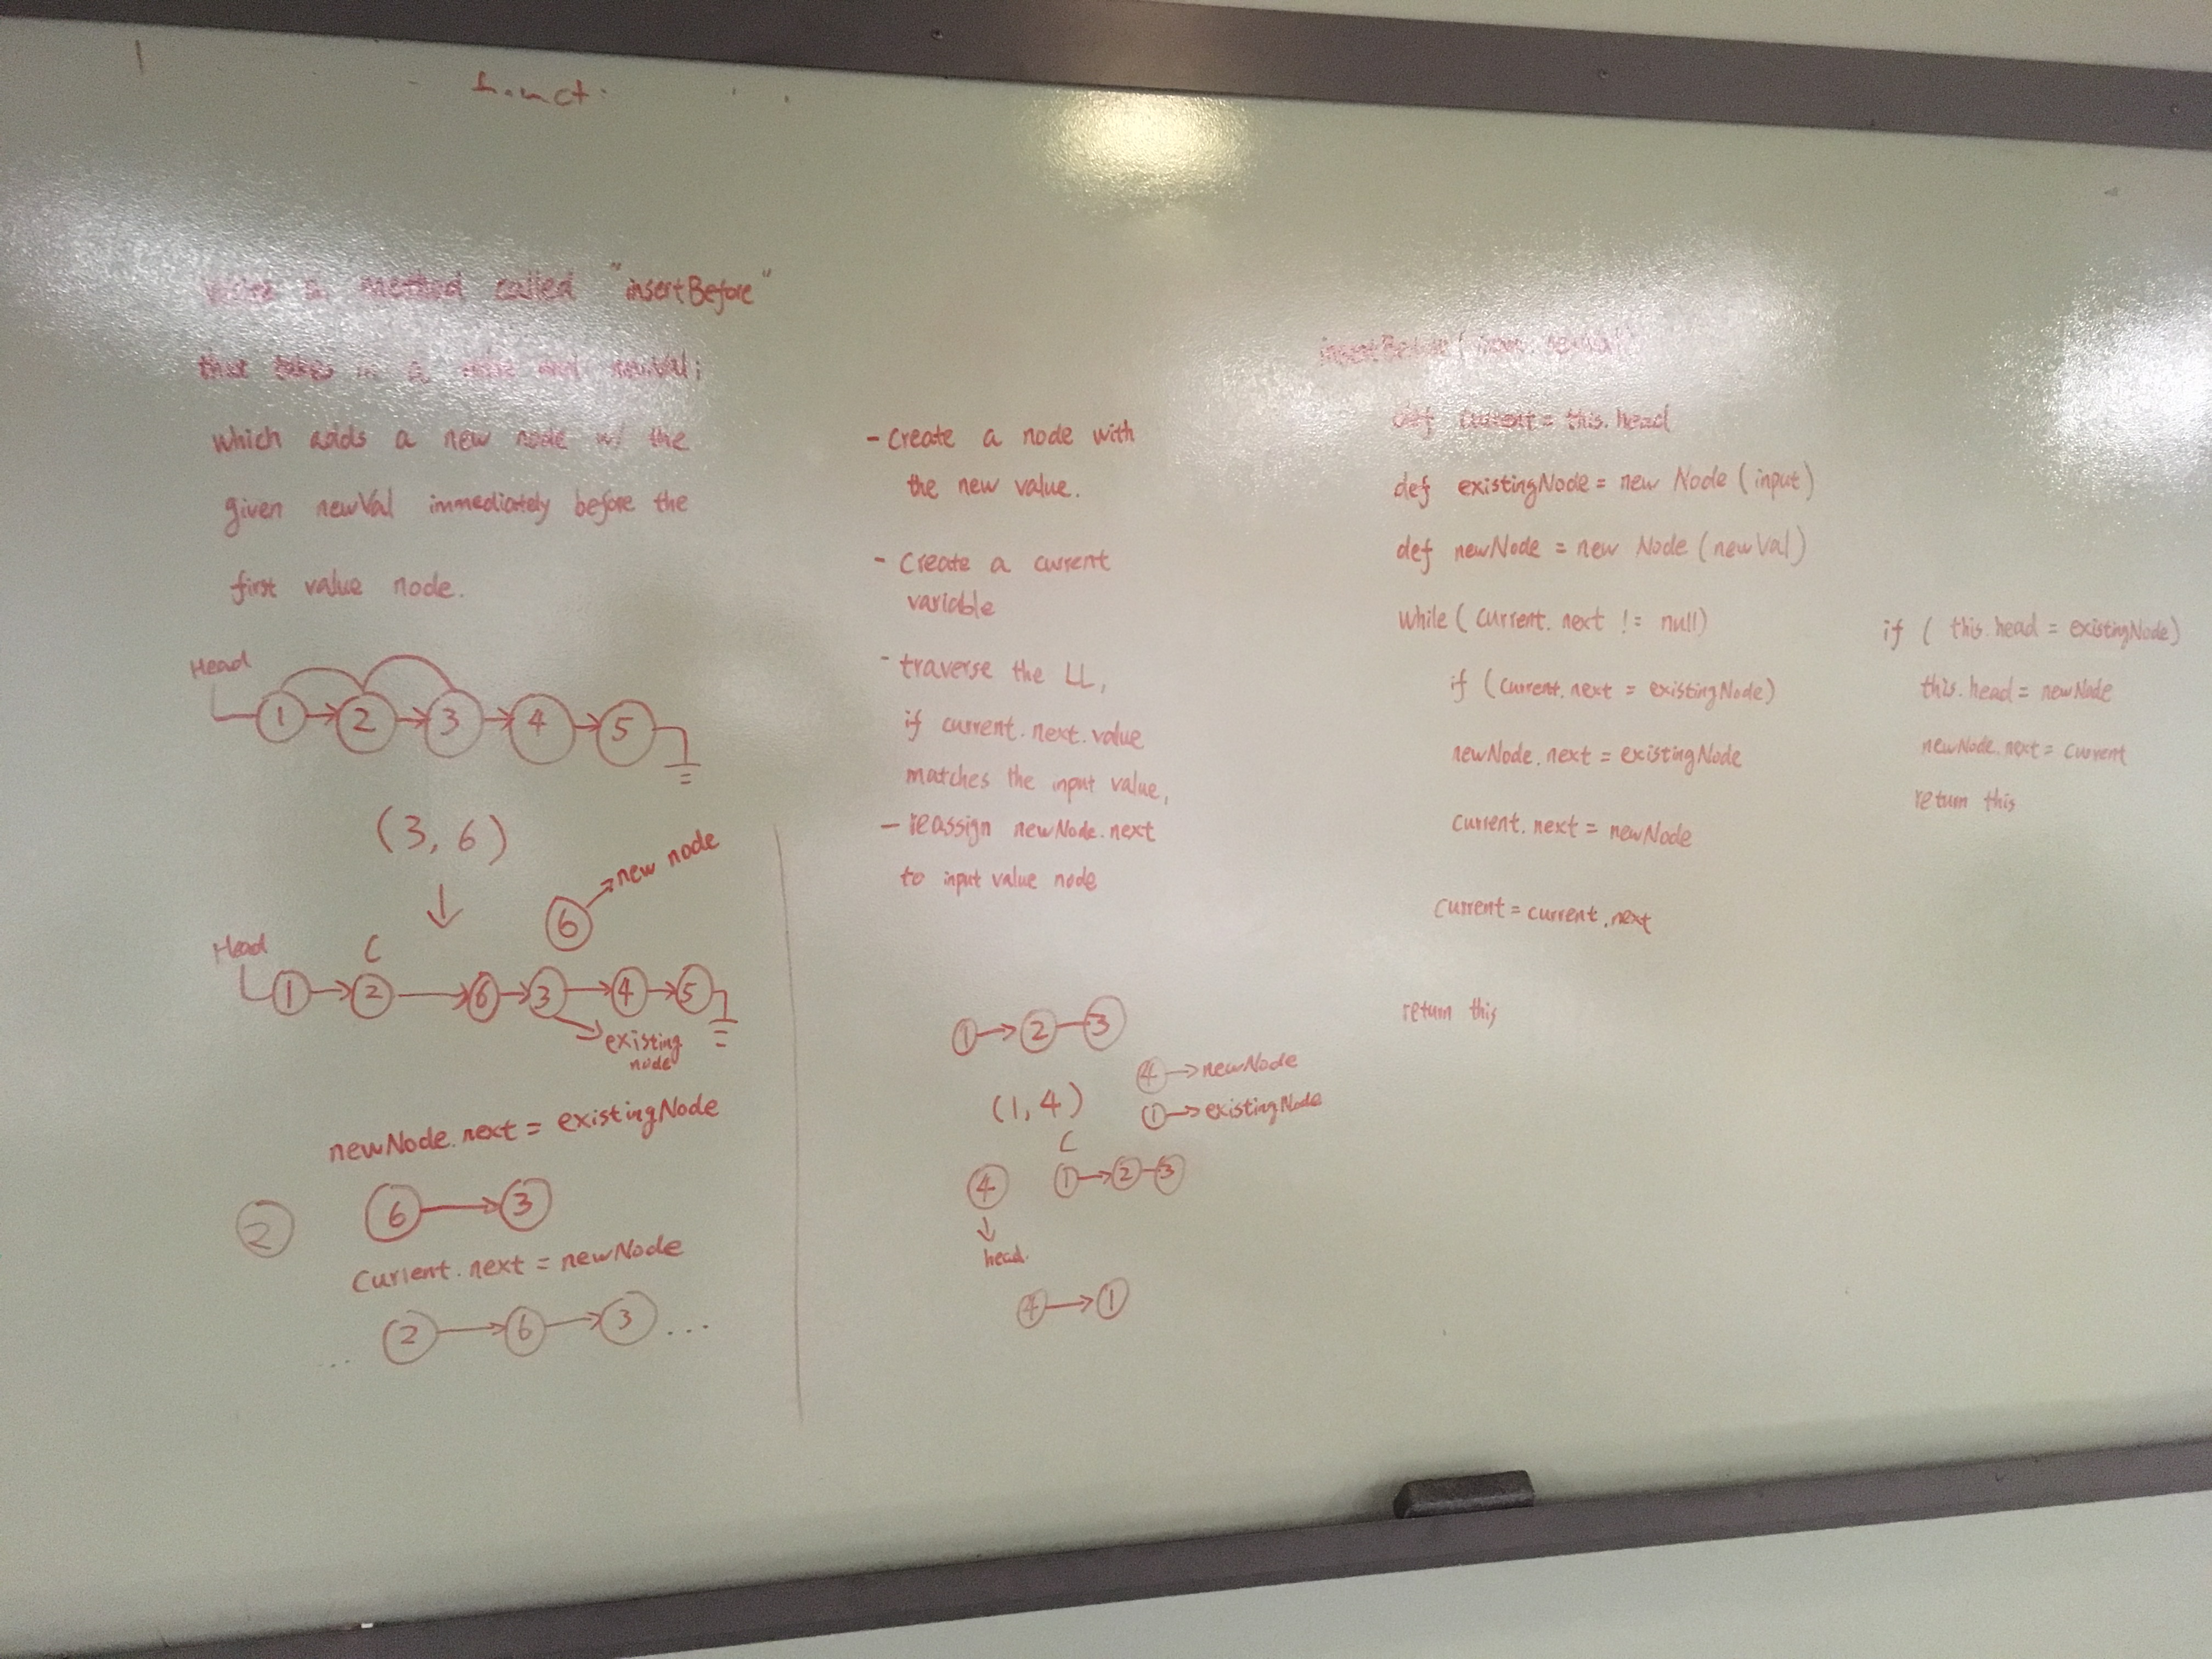 write a method called "insertBefore"
that takes in a node and newVal;
which adds a new node w/ the
given newVal immediately before the
first value node.
Head
1 2 3 4 5
(3, 6)
6 new node
Head C
1 2 6 3 4 5
existing
node
newNode.next = existingNode
2 6 3
Current.next = newNode
... 2 6 3 ...
- Create a node with
the new value.
- Create a current
variable
- traverse the LL,
if current.next.value
matches the input value,
- reassign newNode.next
to input value node
1 2 3
4 newNode
(1, 4)
1 existingNode
C
4 1 2 3
head.
4 1
insertBefore( newVal)
def current = this.head
def existingNode = new Node (input)
def newNode = new Node (newVal)
while ( current.next != null)
if (current.next = existingNode)
newNode.next = existingNode
current.next = newNode
current = current.next
return this
if ( this.head = existingNode)
this.head = newNode
newNode.next = current
return this